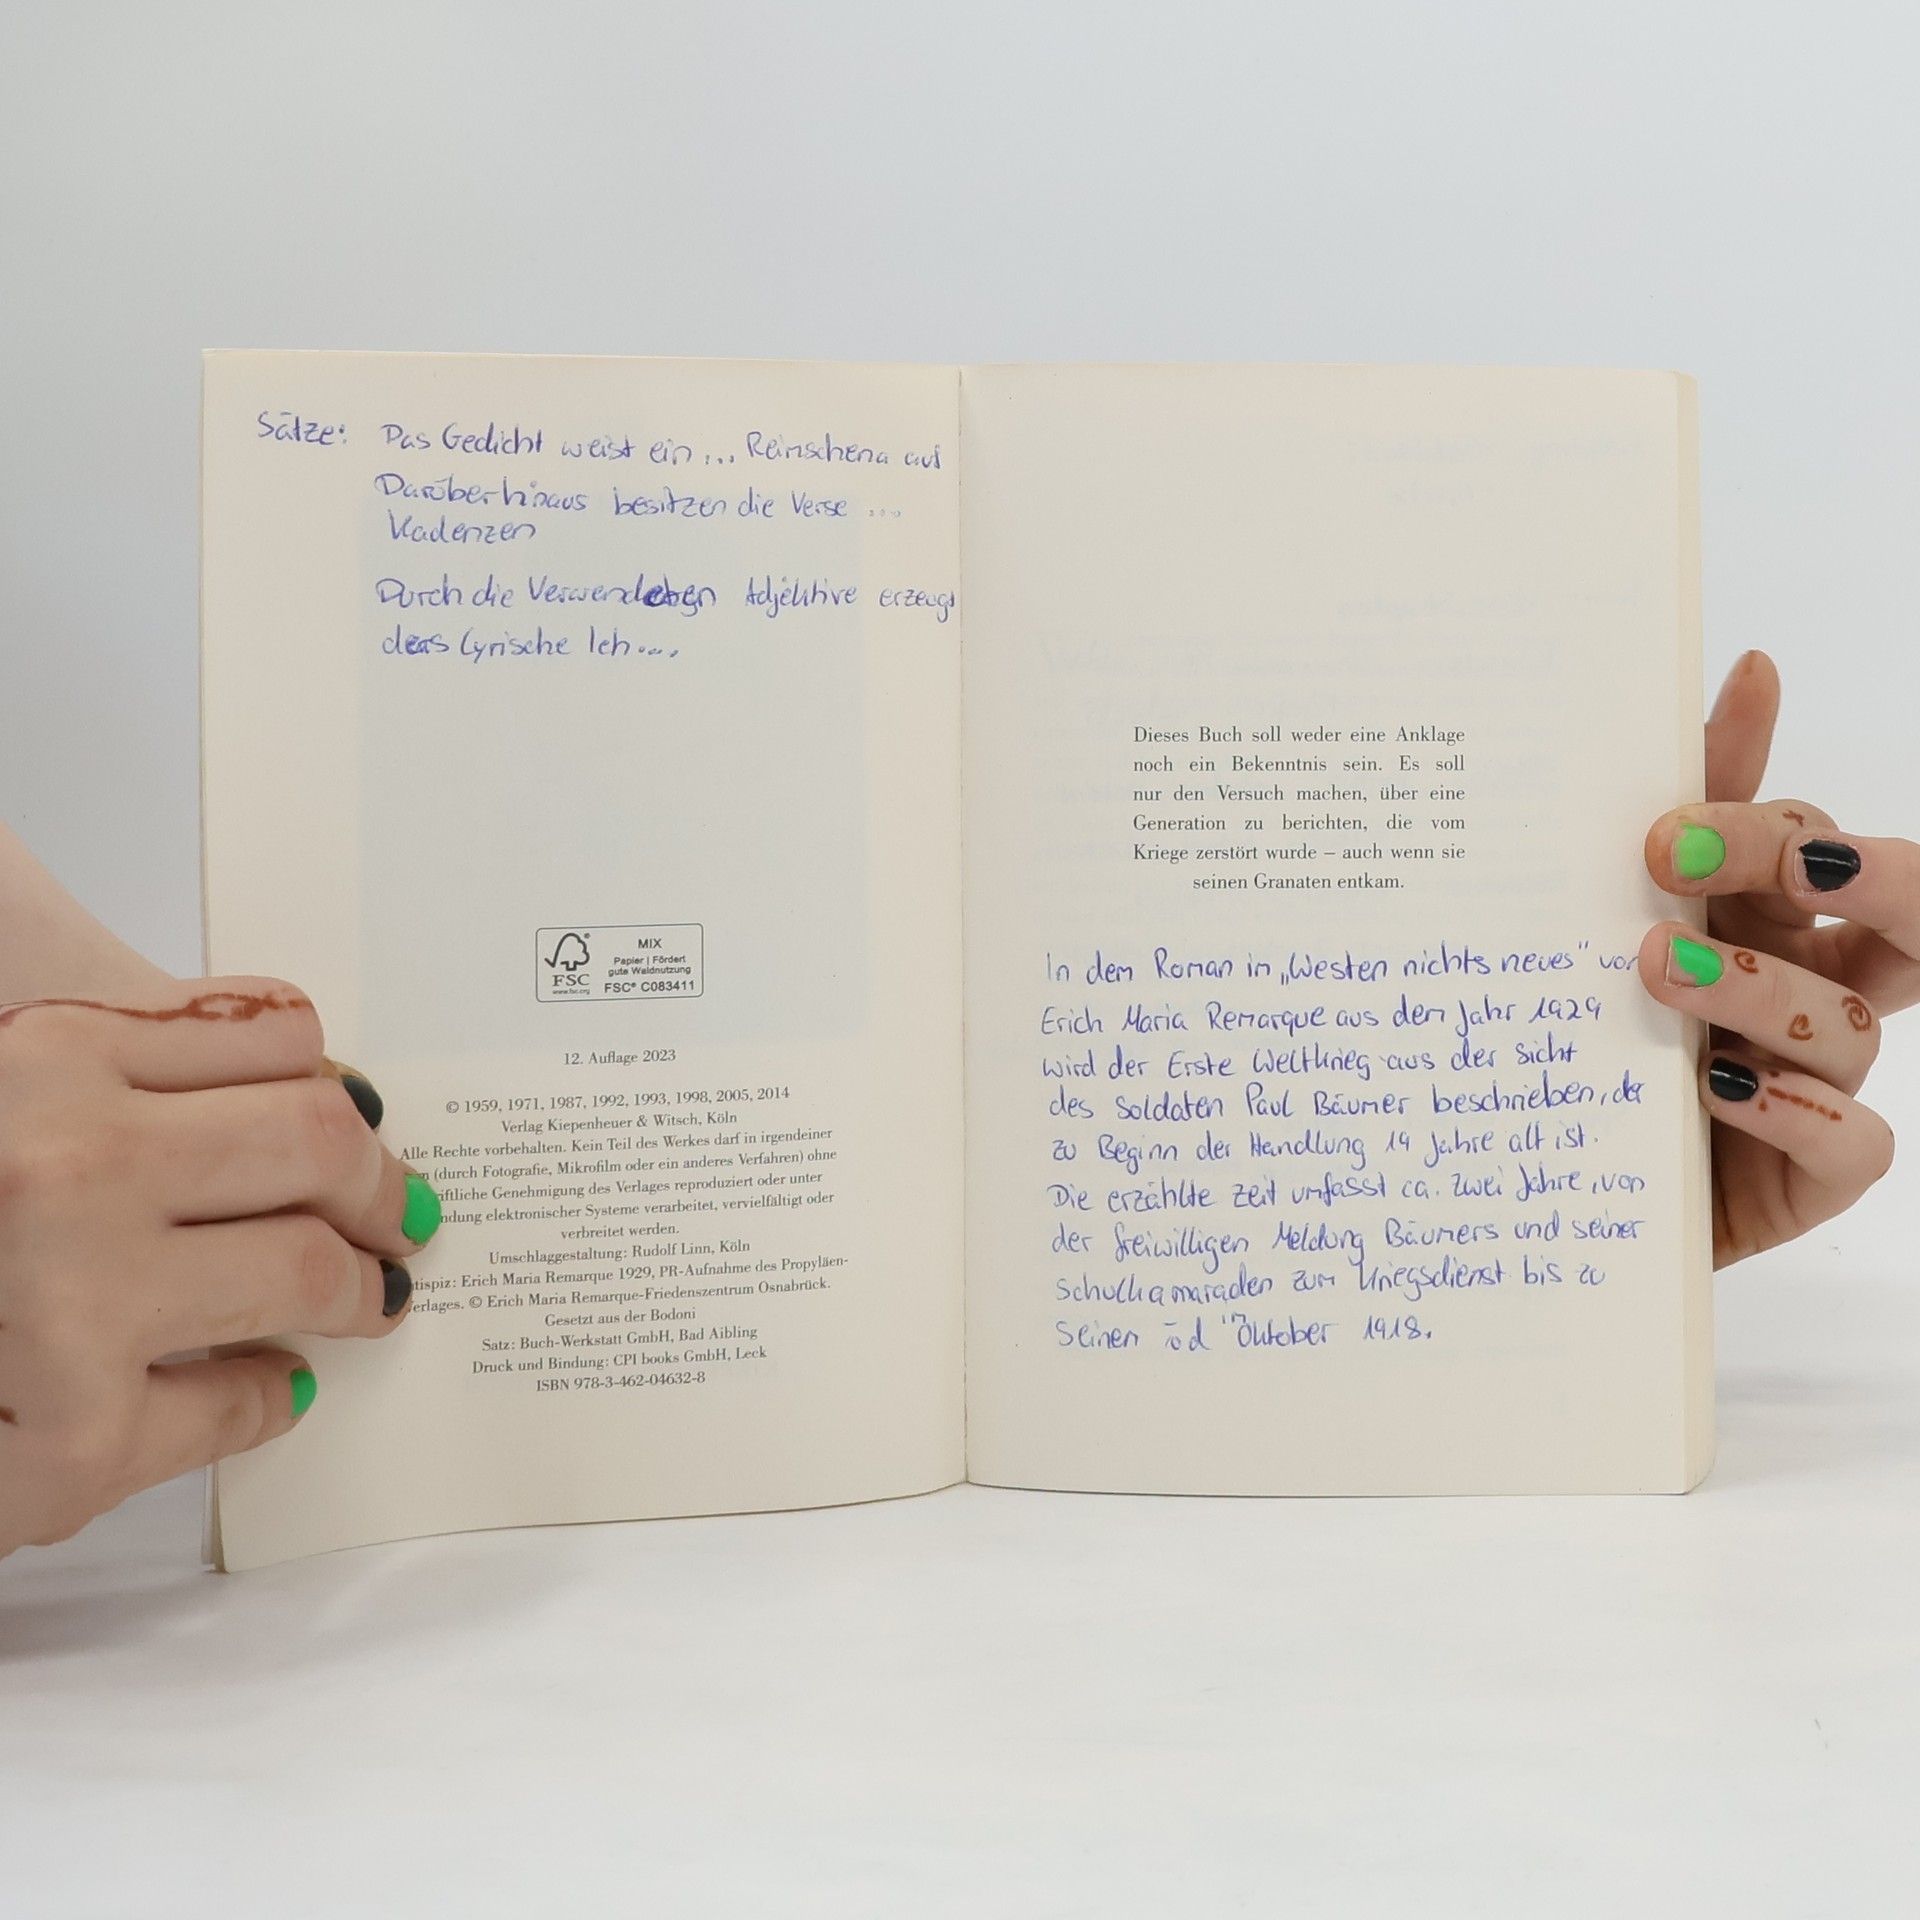 Sätze: Das Gedicht weist ein ... Reimschema auf
Darüber hinaus besitzen die Verse ...
Kadenzen
Durch die Verwendeten Adjektive erzeugt
das Lyrische Ich ...
FSC
www.fsc.org
MIX
Papier | Fördert
gute Waldnutzung
FSC® C083411
12. Auflage 2023
© 1959, 1971, 1987, 1992, 1993, 1998, 2005, 2014
Verlag Kiepenheuer & Witsch, Köln
Alle Rechte vorbehalten. Kein Teil des Werkes darf in irgendeiner
(durch Fotografie, Mikrofilm oder ein anderes Verfahren) ohne
iftliche Genehmigung des Verlages reproduziert oder unter
ndung elektronischer Systeme verarbeitet, vervielfältigt oder
verbreitet werden.
Umschlaggestaltung: Rudolf Linn, Köln
tispiz: Erich Maria Remarque 1929, PR-Aufnahme des Propyläen-
erlages. © Erich Maria Remarque-Friedenszentrum Osnabrück.
Gesetzt aus der Bodoni
Satz: Buch-Werkstatt GmbH, Bad Aibling
Druck und Bindung: CPI books GmbH, Leck
ISBN 978-3-462-04632-8
Dieses Buch soll weder eine Anklage
noch ein Bekenntnis sein. Es soll
nur den Versuch machen, über eine
Generation zu berichten, die vom
Kriege zerstört wurde – auch wenn sie
seinen Granaten entkam.
In dem Roman im „Westen nichts neues" von
Erich Maria Remarque aus dem Jahr 1929
wird der Erste Weltkrieg aus der Sicht
des Soldaten Paul Bäumer beschrieben, der
zu Beginn der Handlung 19 Jahre alt ist.
Die erzählte Zeit umfasst ca. zwei Jahre, von
der freiwilligen Meldung Bäumers und seiner
Schulkamaraden zum Kriegsdienst bis zu
seinen im Oktober 1918.